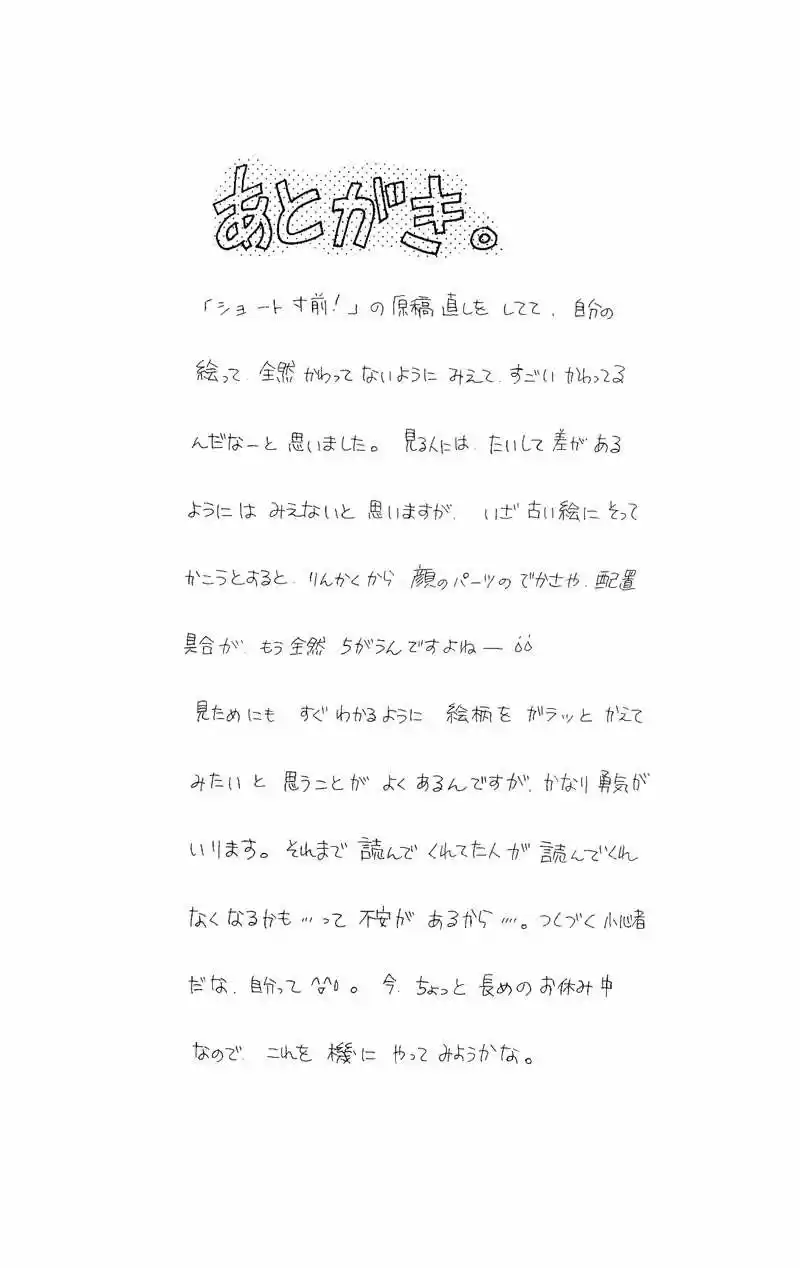 あとがき。
「ショート寸前!」の原稿直しをしてて、自分の
絵って、全然かわってないようにみえて、すごいかわってる
んだなーと思いました。見る人には、たいして差がある
ようにはみえないと思いますが、いざ古い絵にそって
かこうとすると、りんかくから顔のパーツのでかさや、配置
具合が、もう全然ちがうんですよねー
見ためにもすぐわかるように絵柄をガラッとかえて
みたいと思うことがよくあるんですが、かなり勇気が
いります。それまで読んでくれてた人が読んでくれ
なくなるかも…って不安があるから…。つくづく小心者
だな、自分って^^。今、ちょっと長めのお休み中
なので、これを機にやってみようかな。